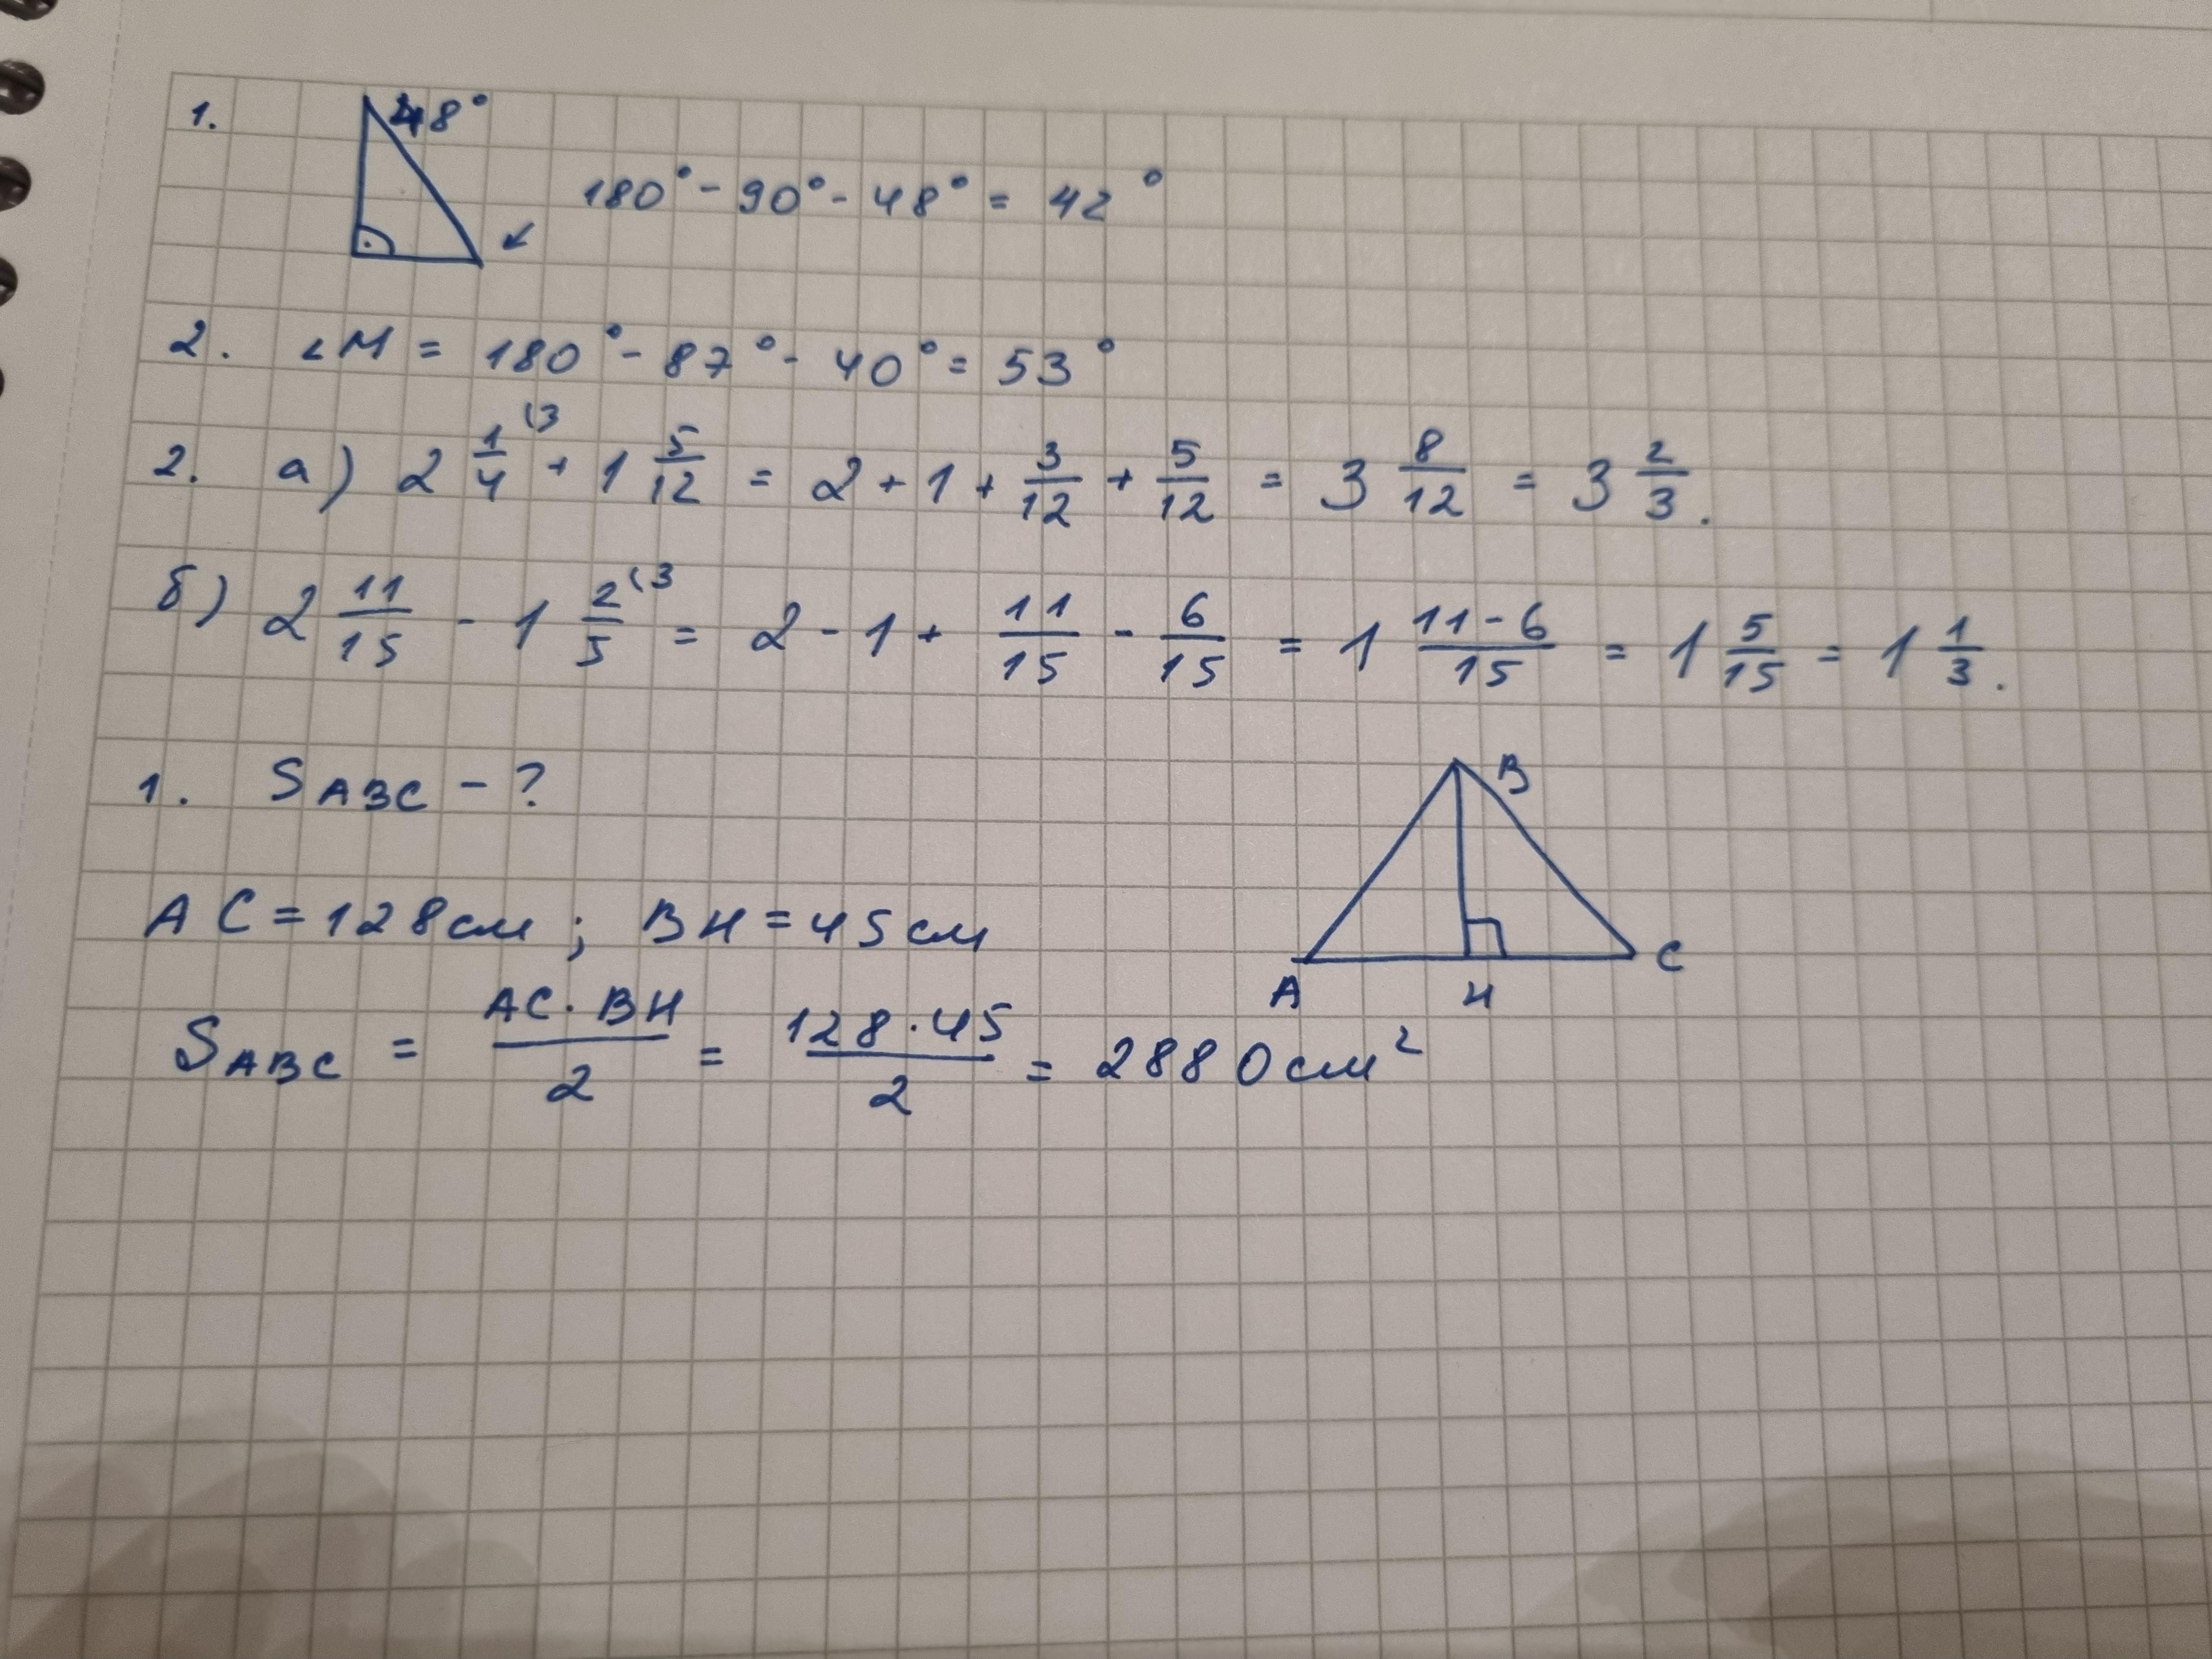 1. 48°
180° - 90° - 48° = 42°
2. ∠M = 180° - 87° - 40° = 53°
2. а) 2 1/4 (3 + 1 5/12 = 2 + 1 + 3/12 + 5/12 = 3 8/12 = 3 2/3.
б) 2 11/15 - 1 2/5 (3 = 2 - 1 + 11/15 - 6/15 = 1 11-6/15 = 1 5/15 = 1 1/3.
1. SABC - ?
B
AC = 128 см; BH = 45 см
A H C
SABC = AC · BH/2 = 128 · 45/2 = 2880 см²